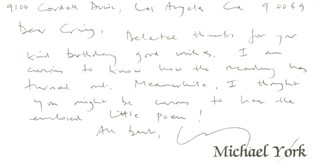 9100 Cordell Drive, Los Angeles Ca 90069
Dear Craig,
Belated thanks for your
kind birthday good wishes. I am
curious to know how the reading has
turned out. Meanwhile, I thought
you might be curious to have the
enclosed little poem!
All best,
Michael York